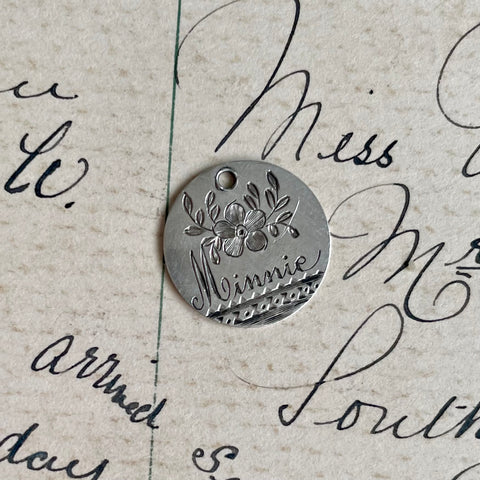 W.
Miss
Minnie
Mr
arrived
South
day